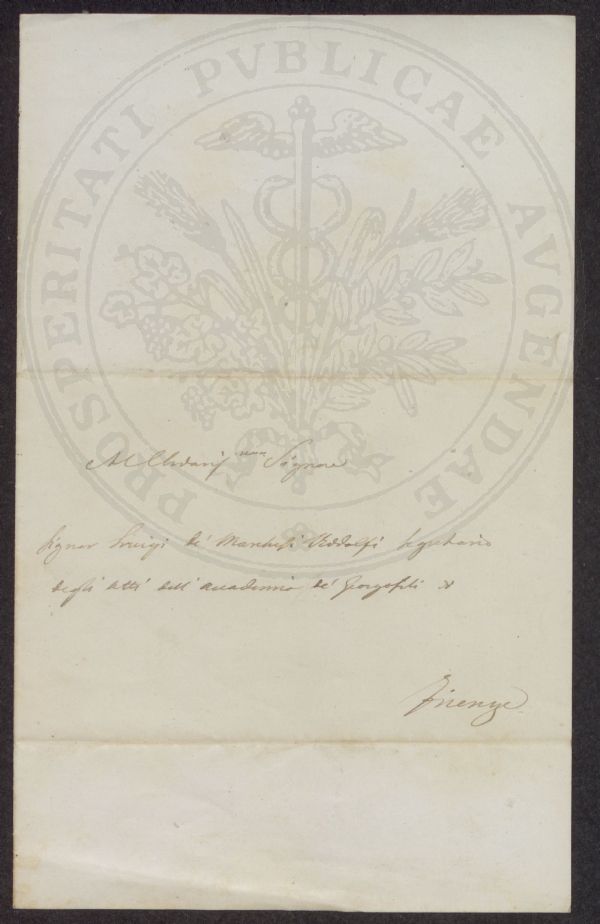 PROSPERITATI PVBLICAE AVGENDAE
Al Chdariss.mo Signore
Signor Luigi de' Marchesi Ridolfi Segretario
degli Atti dell' Accademia de' Georgofili &
Firenze